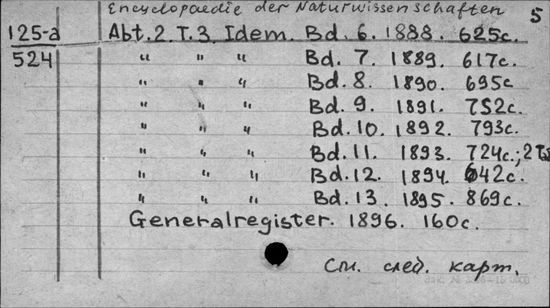 Encyclopaedie der Naturwissenschaften 5
125-а Abt. 2. T. 3. Idem. Bd. 6. 1888. 625с.
524 " " " Bd. 7. 1889. 617с.
" " " Bd. 8. 1890. 695с
" " " Bd. 9. 1891. 752с.
" " " Bd. 10. 1892. 793с.
" " " Bd. 11. 1893. 724с.; 2
" " " Bd. 12. 1894. 642с.
" " " Bd. 13. 1895. 869с.
Generalregister. 1896. 160с.
См. след. карт.